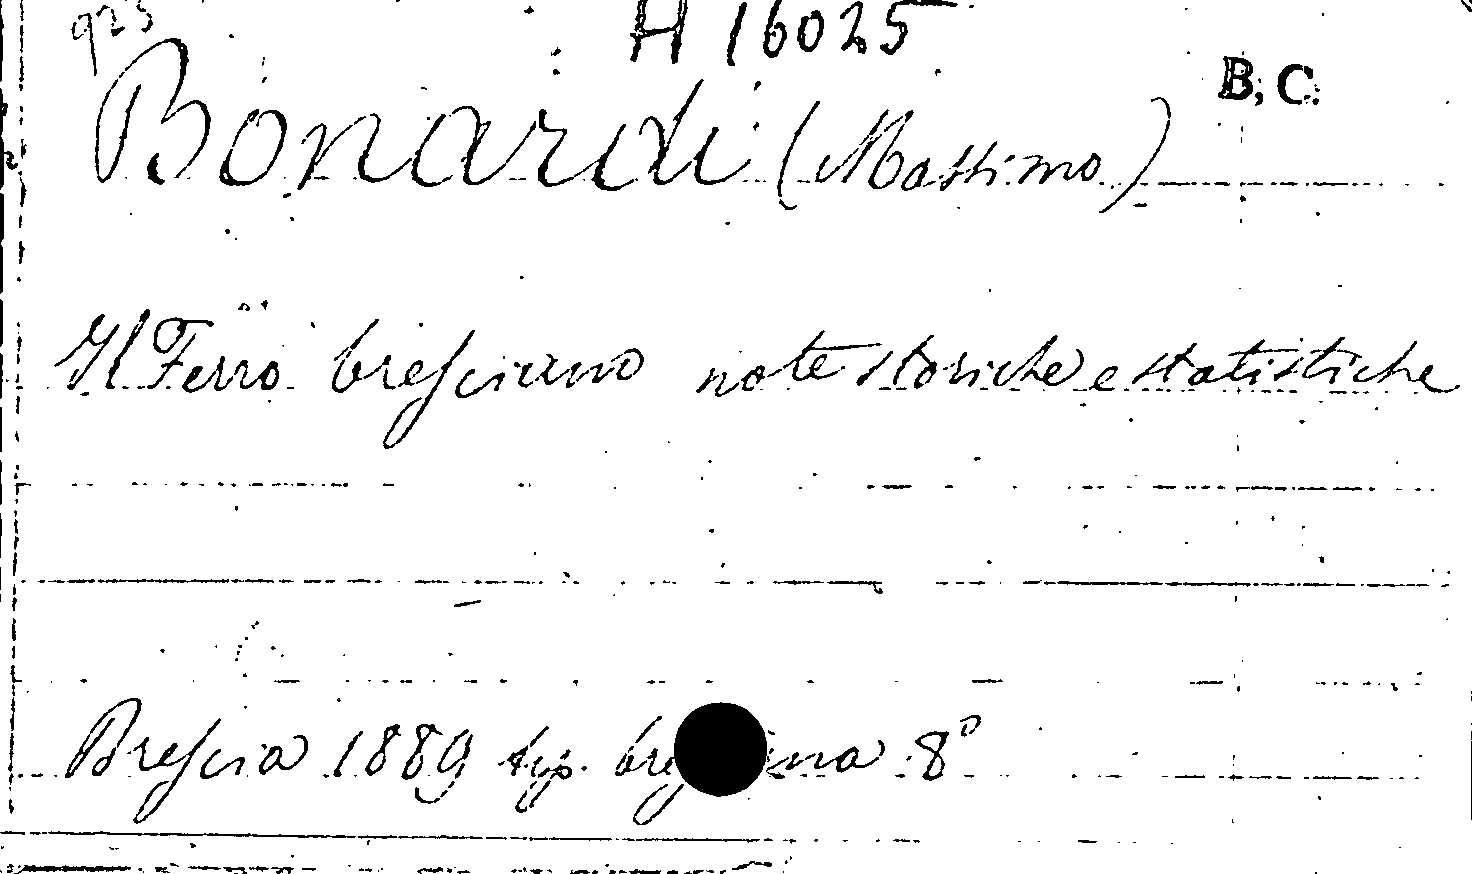 923
H 16025
B, C.
Bonardi (Massimo)
Il Ferro bresciano note storiche e statistiche
Brescia 1889 tip. 8°